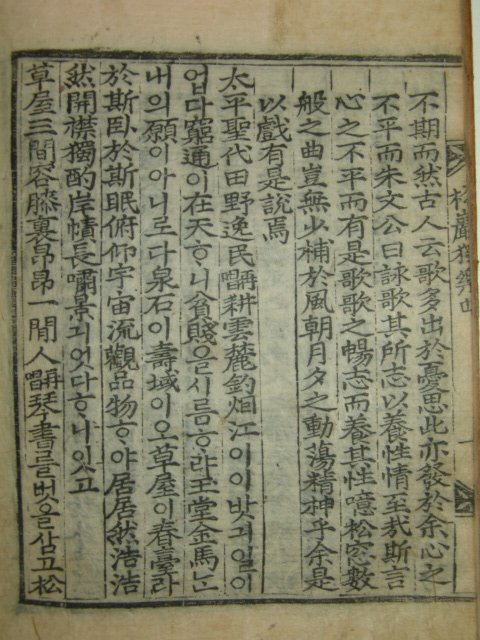 不期而然古人云歌多出於憂思此亦發於余心之
不平而朱文公曰詠歌其所志以養性情至哉斯言
心之不平而有是歌歌之暢志而養其性噫松窓數
般之曲豈無少補於風朝月夕之動蕩精神乎余是
以戲有是說焉
太平聖代田野逸民再唱耕雲麓釣烟江이이밧긔일이
업다窮通이在天ᄒᆞ니貧賤을시름ᄒᆞ랴玉堂金馬ᄂᆞᆫ
내의願이아니로다泉石이壽域이오草屋이春臺라
於斯臥於斯眠俯仰宇宙流觀品物ᄒᆞ야居居然浩浩
然開襟獨酌岸幘長嘯景긔엇다ᄒᆞ니잇고
草屋三間容膝裏昂昂一閒人再唱琴書를벗을삼고松